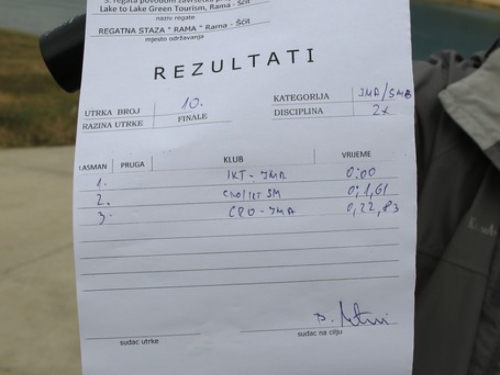 3. regata povodom završetka
Lake to Lake Green Tourism, Rama - Šćit
naziv regate
REGATNA STAZA " RAMA " Rama - Šćit
mjesto održavanja
REZULTATI
UTRKA BROJ 10. KATEGORIJA JMA/SMB
RAZINA UTRKE FINALE DISCIPLINA 2x
LASMAN PRUGA KLUB VRIJEME
1. IKT - JMA 0:00
2. CRO/IKT SM 0; 1,61
3. CRO - JMA 0,22,83
sudac utrke sudac na cilju